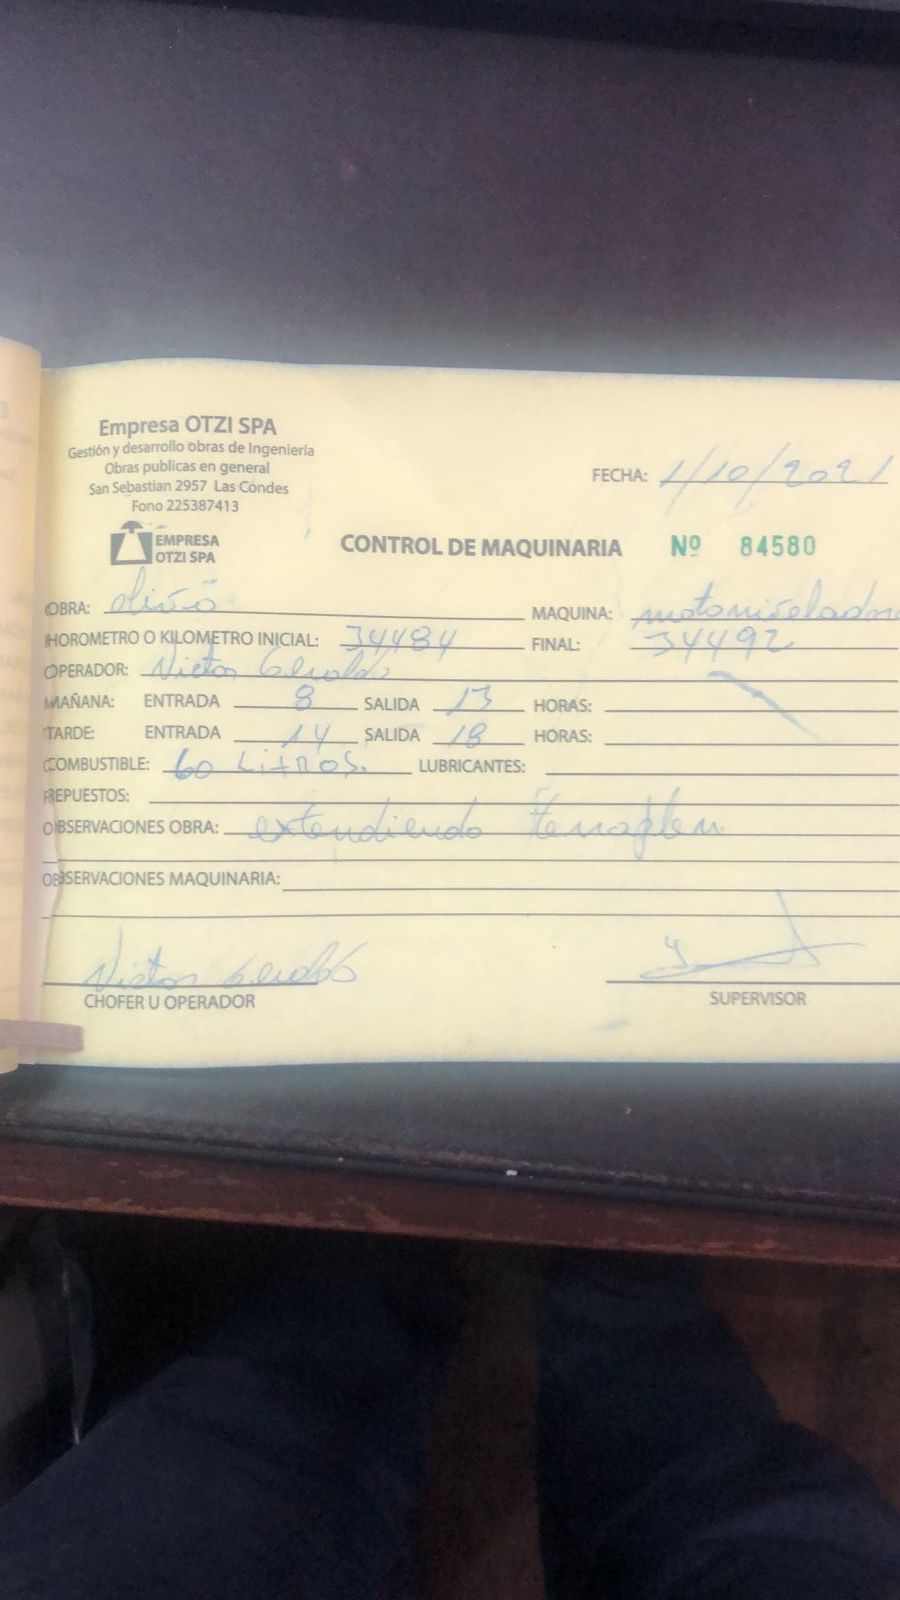 Empresa OTZI SPA
Gestión y desarrollo obras de Ingeniería
Obras publicas en general
San Sebastian 2957 Las Condes
Fono 225387413
FECHA: 1/10/2021
EMPRESA
OTZI SPA
CONTROL DE MAQUINARIA Nº 84580
OBRA:
MAQUINA: motoniveladora
HOROMETRO O KILOMETRO INICIAL: 34484 FINAL: 34492
OPERADOR: Victor
MAÑANA: ENTRADA 8 SALIDA 13 HORAS:
TARDE: ENTRADA 14 SALIDA 18 HORAS:
COMBUSTIBLE: 60 LiTROS. LUBRICANTES:
REPUESTOS:
OBSERVACIONES OBRA: extendiendo terraplen
OBSERVACIONES MAQUINARIA:
Victor
CHOFER U OPERADOR
SUPERVISOR